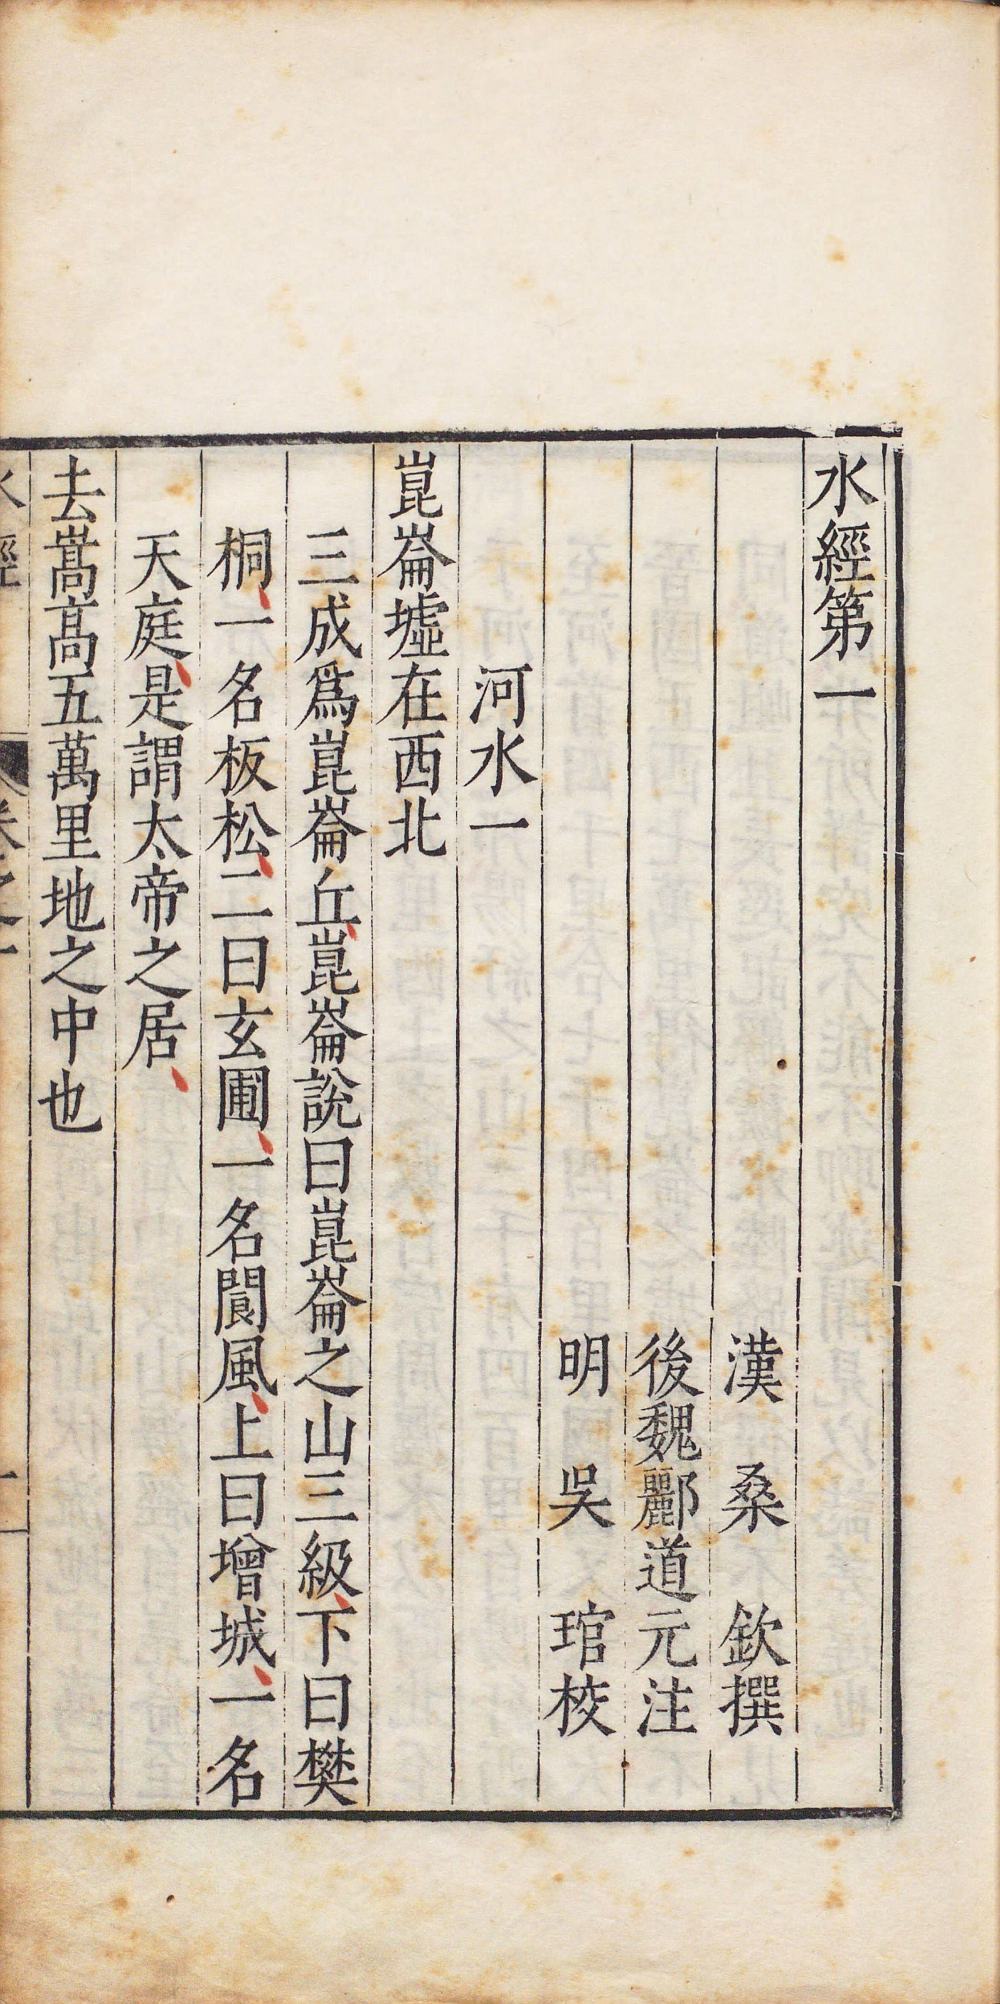 水經第一
漢 桑 欽撰
後魏酈道元注
明 吳 琯校
河水一
崑崙墟在西北
三成爲崑崙丘崑崙說曰崑崙之山三級下曰樊
桐一名板松二曰玄圃一名閬風上曰增城一名
天庭是謂太帝之居
去嵩高五萬里地之中也
水經 卷之一 一